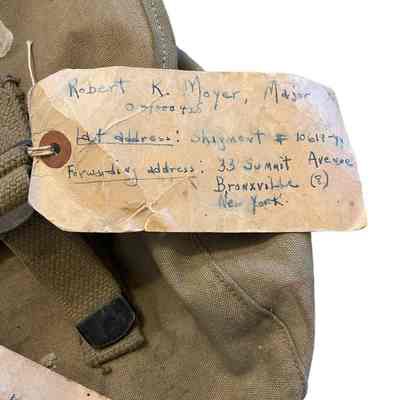 Robert K. Moyer, Major
Last address: Shipment #
Forwarding address: 33 Summit Avenue
Bronxville (8)
New York.